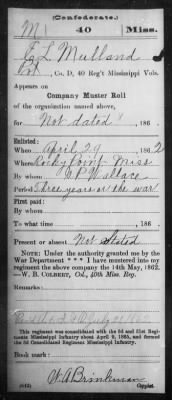 (Confederate.)
M 40 Miss.
E. L. Mulland
Pvt, Co. D, 40 Reg't Mississippi Vols.
Appears on
Company Muster Roll
of the organization named above,
for Not dated, 186 .
Enlisted:
When April 29, 186 2
Where Rocky Point Miss
By whom J. P. Wallace
Period Three years or the war
First paid:
By whom
To what time , 186 .
Present or absent Not Stated
NOTE: Under the authority granted me by the
War Department * * * I have mustered into my
regiment the above company the 14th May, 1862.
—W. B. COLBERT, Col., 40th Miss. Reg.
Remarks:
This regiment was consolidated with the 3d and 31st Regi-
ments Mississippi Infantry about April 9, 1865, and formed
the 3d Consolidated Regiment Mississippi Infantry.
Book mark:
(642) Brinkman
Copyist.